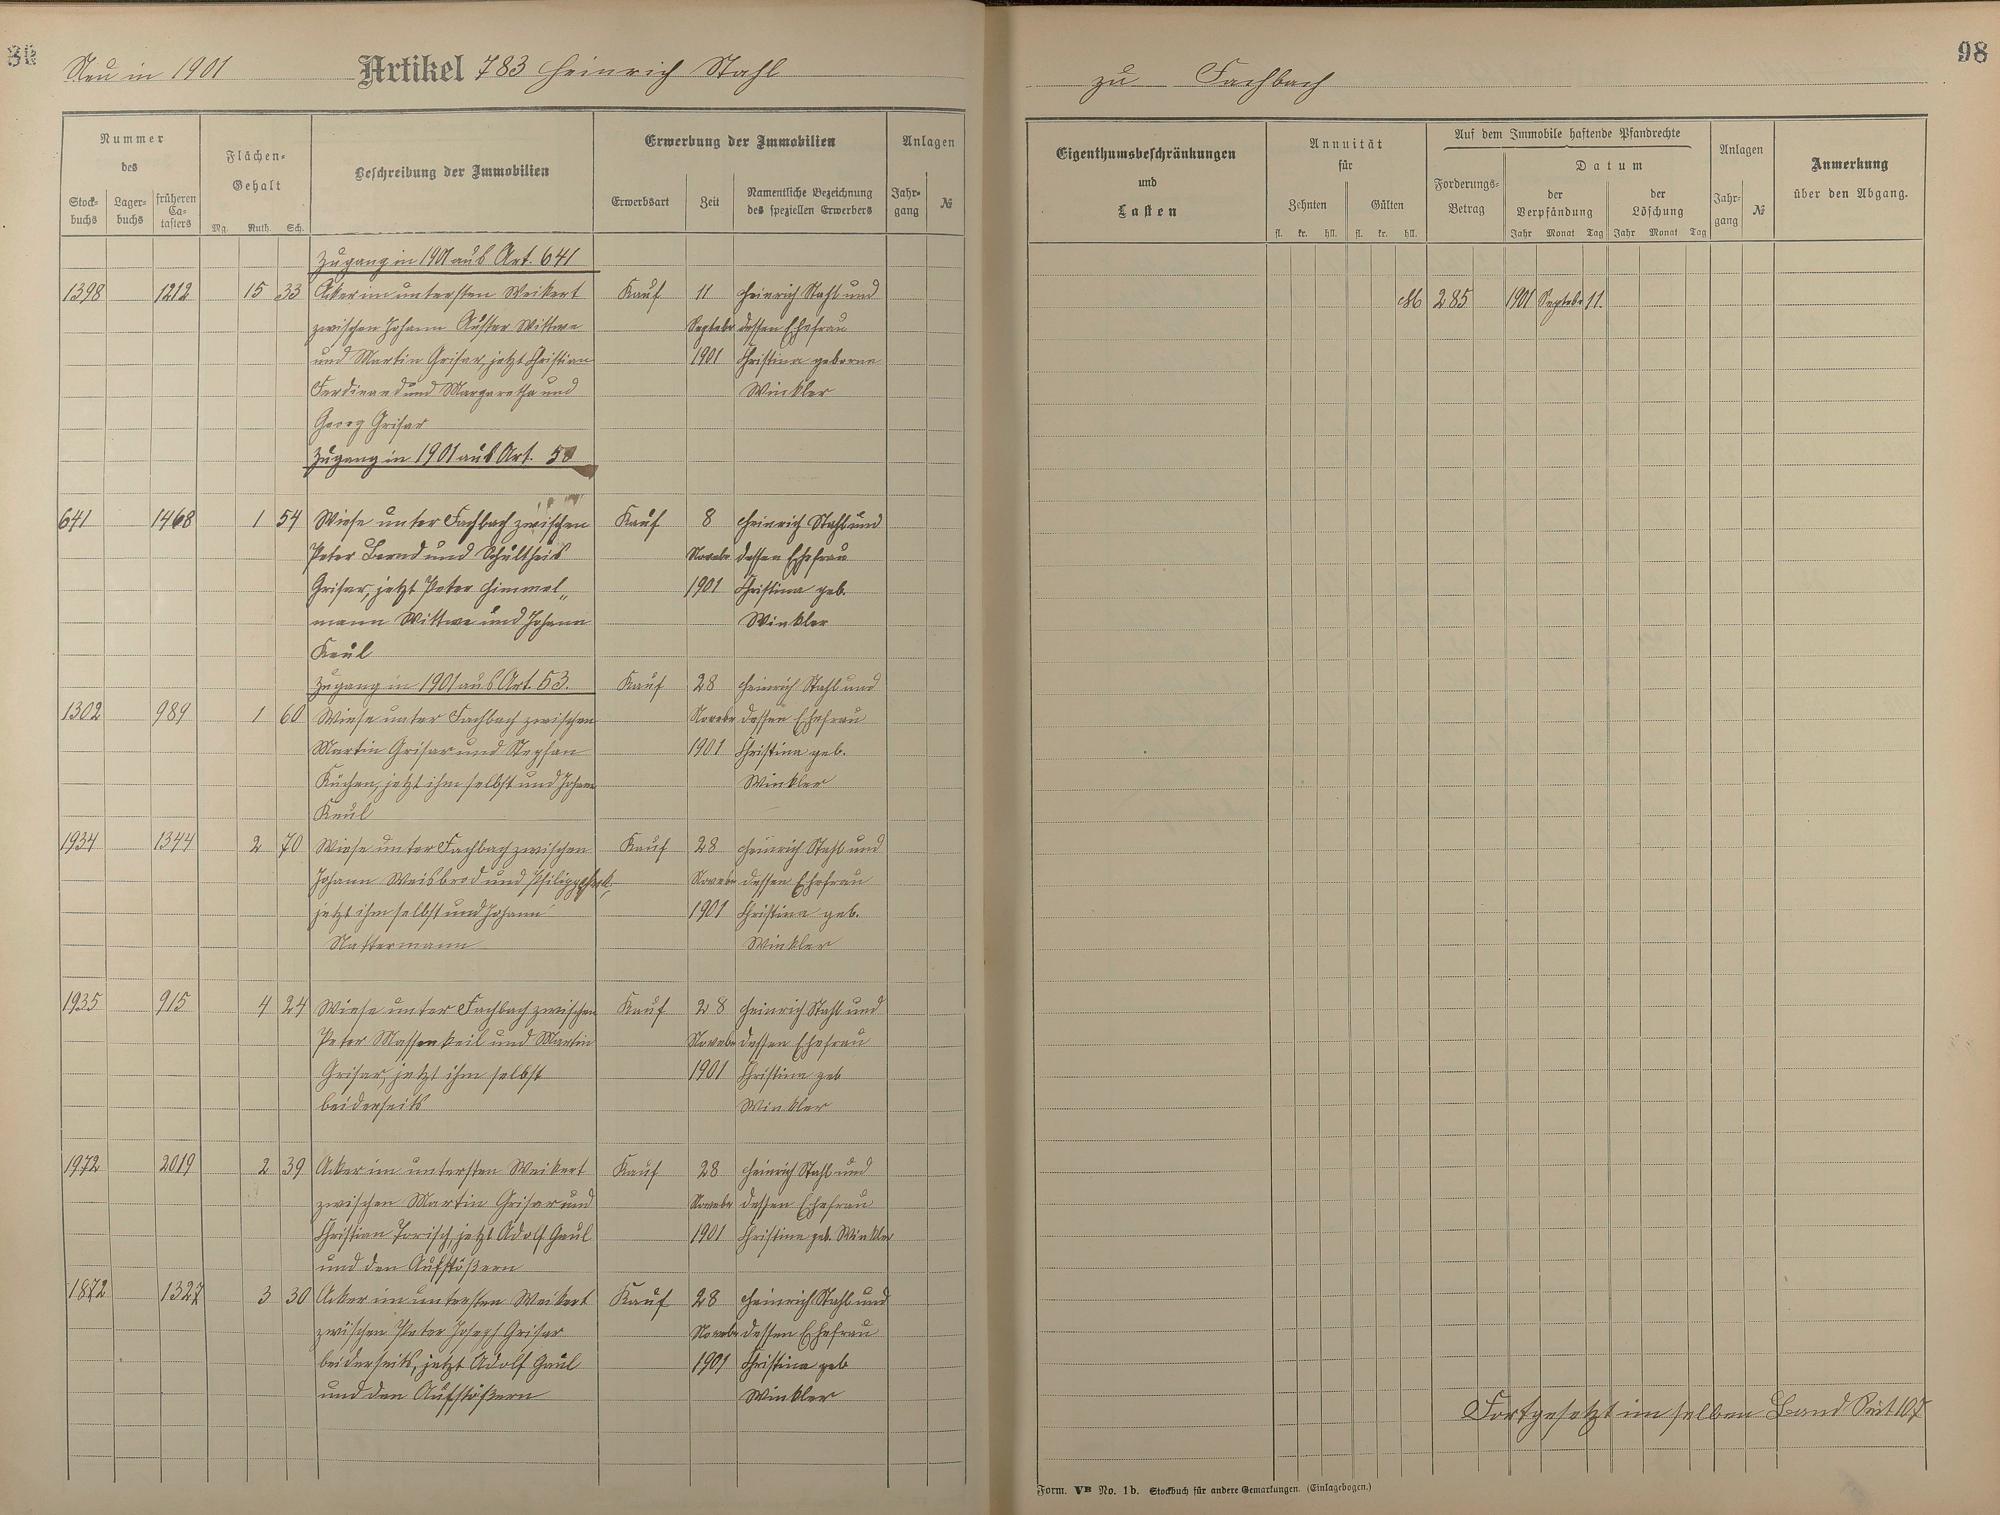 98
Neu in 1901 Artikel 783 Heinrich Stahl
zu Fachbach
Nummer
des
Stock-
buchs
Lager-
buchs
früheren
Ca-
tasters
Flächen-
Gehalt
Mg. Ruth. Sch.
Beschreibung der Immobilien
Erwerbung der Immobilien
Erwerbsart
Zeit
Namentliche Bezeichnung
des speziellen Erwerbers
Anlagen
Jahr-
gang
№
Zugang in 1901 aus Art. 641
1398 1212 15 33 Acker im untersten Weikert Kauf 11 Heinrich Stahl und
zwischen Johann Auster Wittwe Septebr dessen Ehefrau
und Martin Grisar, jetzt Christian 1901 Christina geborne
Ferdinand und Margaretha und Winkler
Georg Grisar
Zugang in 1901 aus Art. 58
641 1468 1 54 Wiese unter Fachbach zwischen Kauf 8 Heinrich Stahl und
Peter Bernd und Schultheis Novebr dessen Ehefrau
Grisar, jetzt Peter Himmel„ 1901 Christina geb.
mann Wittwe und Johann Winkler
Keul
Zugang in 1901 aus Art. 53. Kauf 28 Heinrich Stahl und
1302 989 1 60 Wiese unter Fachbach zwischen Novebr dessen Ehefrau
Martin Grisar und Stephan 1901 Christina geb.
Küchen, jetzt ihm selbst und Johann Winkler
Keul
1934 1344 2 70 Wiese unter Fachbach zwischen Kauf 28 Heinrich Stahl und
Johann Weisbrod und Philipp Novebr dessen Ehefrau
jetzt ihm selbst und Johann 1901 Christina geb.
Nattermann Winkler
1935 915 4 24 Wiese unter Fachbach zwischen Kauf 28 Heinrich Stahl und
Peter Massenkeil und Martin Novebr dessen Ehefrau
Grisar, jetzt ihm selbst 1901 Christina geb
beiderseits Winkler
1972 2019 2 39 Acker im untersten Weikert Kauf 28 Heinrich Stahl und
zwischen Martin Grisar und Novebr dessen Ehefrau
Christian Dorisch, jetzt Adolf Gaul 1901 Christina geb. Winkler
und den Aufstößern
1872 1327 3 30 Acker im untersten Weikert Kauf 28 Heinrich Stahl und
zwischen Peter Joseph Grisar Novebr dessen Ehefrau
beiderseits, jetzt Adolf Gaul 1901 Christina geb
und den Aufstößern Winkler
Eigenthumsbeschränkungen
und
Lasten
Annuität
für
Zehnten Gülten
fl. kr. hll. fl. kr. hll.
Auf dem Immobile haftende Pfandrechte
Forderungs-
Betrag
Datum
der
Verpfändung
der
Löschung
Jahr Monat Tag Jahr Monat Tag
Anlagen
Jahr-
gang
№
Anmerkung
über den Abgang.
M 285 1901 Septebr 11.
Fortgesetzt im selben Band Seit 107
Form. VB No. 1b. Stockbuch für andere Gemarkungen. (Einlagebogen.)